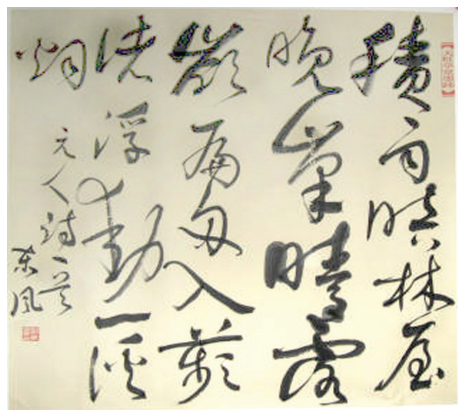 積雨暗林屋
晚峯晴露
巔扁舟入蘋
渚浮動一溪
烟
元人詩一首
东风